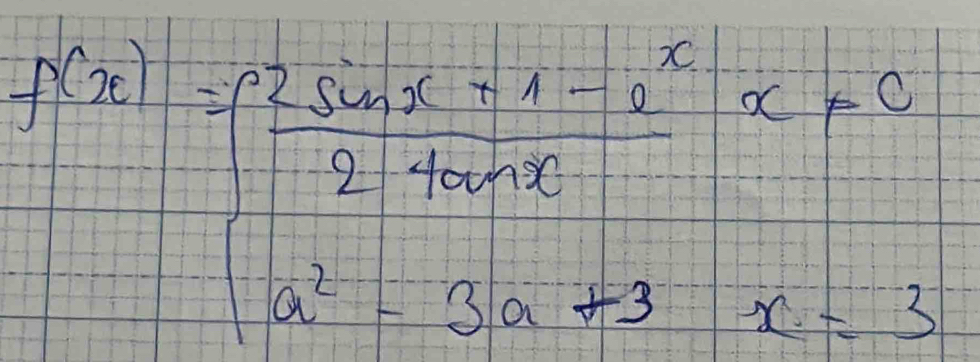 f(x) = { 2 sin x + 1 - e^x x ≠ 0
2 tan x
a² - 3a + 3 x = 3